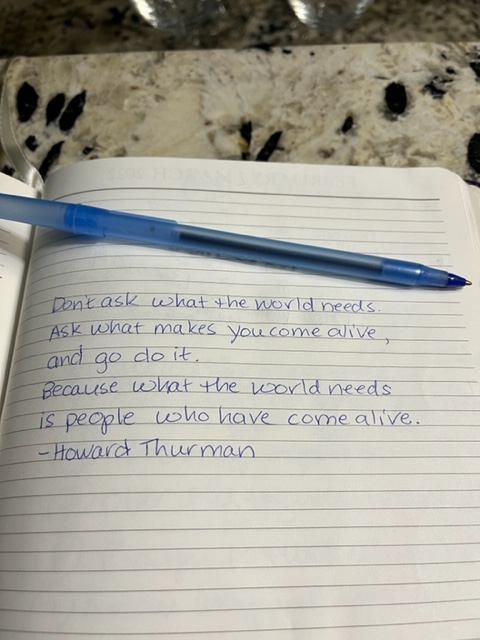 Don't ask what the world needs.
Ask what makes you come alive,
and go do it.
Because what the world needs
is people who have come alive.
-Howard Thurman